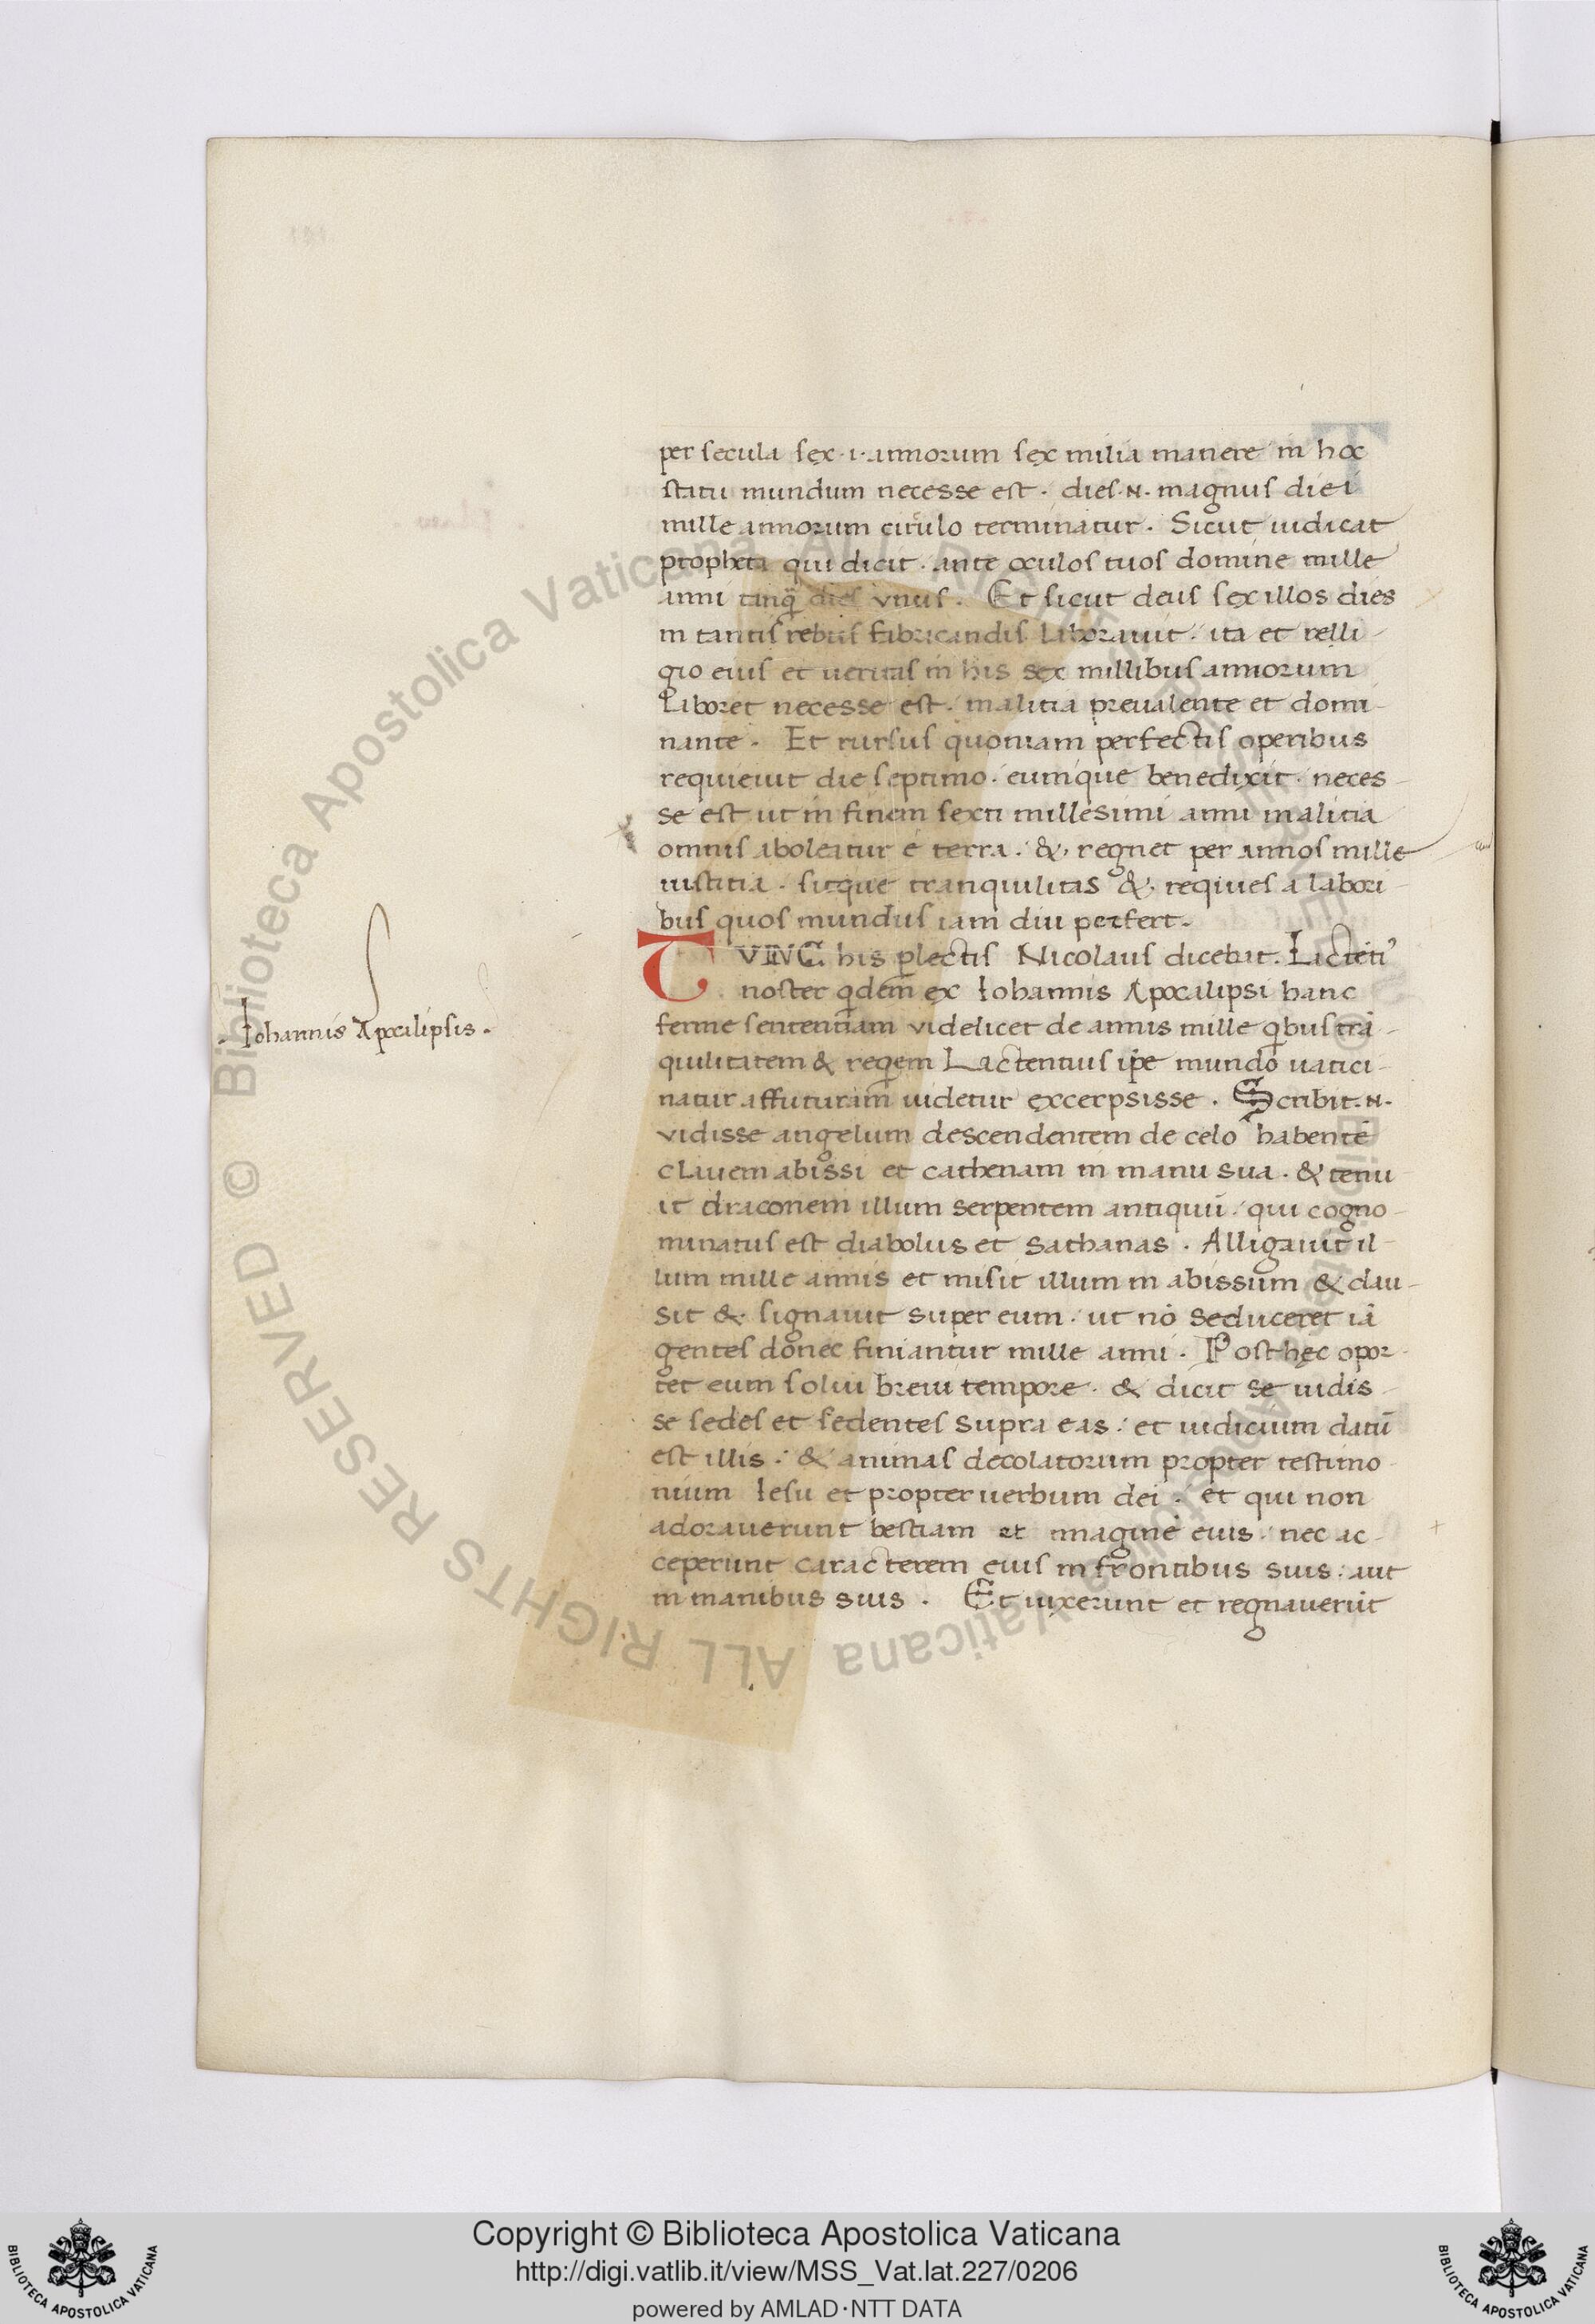 per secula sex .i. annorum sex milia manere in hoc
statu mundum necesse est. dies .N. magnus dei
mille annorum cirulo terminatur. Sicut iudicat
propheta qui dicit. ante oculos tuos domine mille
anni tanq̃ dies vnus. Et sicut deus sex illos dies
in tantis rebus fabricandis laborauit. ita et relli-
gio eius et ueritas in his sex millibus annorum
laboret necesse est. malitia preualente et domi-
nante. Et rursus quoniam perfectis operibus
requieuit die septimo. eumque benedixit. neces-
se est ut in finem sexti millesimi anni malitia
omnis aboleatur e terra. &. regnet per annos mille
iustitia. sitque tranquilitas &. requies a labori-
bus quos mundus iam diu perfert.
TVNC his plectis Nicolaus dicebat. Lactẽti'
noster qdem ex Iohannis Apocalipsi hanc
Iohannis Apocalipsis.
ferme sententiam videlicet de annis mille qbus trã-
quilitatem & reqem Lactentius ipẽ mundo uatici-
natur affuturam uidetur excerpsisse. Scribit .N.
vidisse angelum descendentem de celo habentẽ
clauem abissi et cathenam in manu sua. & tenu-
it draconem illum serpentem antiquũ. qui cogno-
minatus est diabolus et Sathanas. Alligauit il-
lum mille annis et misit illum in abissum & clau-
sit &. signauit super eum. ut nõ seduceret iã
gentes donec finiantur mille anni. Post hęc opor-
tet eum solui breui tempore. & dicit se uidis-
se sedes et sedentes supra eas. et iudicium datũ
est illis. & animas decolatorum propter testimo-
nium Iesu et propter uerbum dei. et qui non
adorauerunt bestiam et imaginẽ eius. nec ac-
ceperunt caracterem eius in frontibus suis. aut
in manibus suis. Et uixerunt et regnauerũt
Biblioteca Apostolica Vaticana ALL RIGHTS RESERVED ©
Copyright © Biblioteca Apostolica Vaticana
http://digi.vatlib.it/view/MSS_Vat.lat.227/0206
powered by AMLAD·NTT DATA
BIBLIOTECA APOSTOLICA VATICANA
BIBLIOTECA APOSTOLICA VATICANA